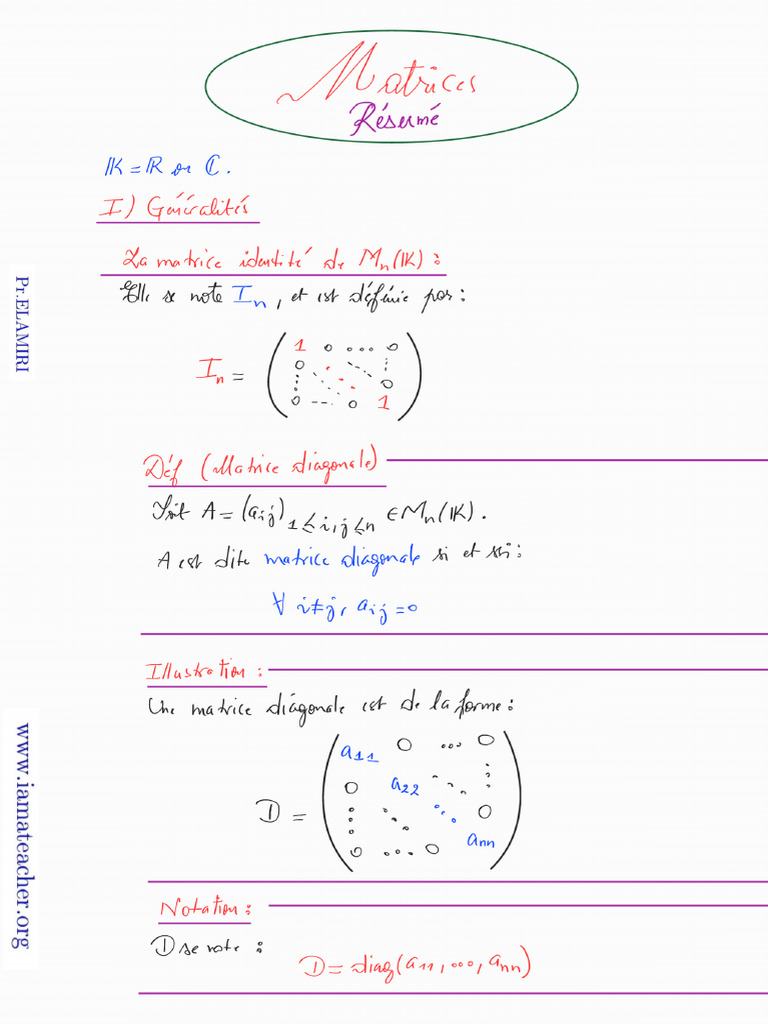 Matrices
Résumé
𝕂 = ℝ ou ℂ.
I) Généralités
La matrice identité de Mn(𝕂) :
Elle se note In, et est définie par :
In = ( 1 0 ... 0
0 ⋱ ⋱ ⋮
⋮ ⋱ ⋱ 0
0 ... 0 1 )
Déf (Matrice diagonale)
Soit A = (aij) 1≤i,j≤n ∈ Mn(𝕂).
A est dite matrice diagonale si et ssi :
∀ i≠j, aij = 0
Illustration :
Une matrice diagonale est de la forme :
D = ( a11 0 ... 0
0 a22 ⋱ ⋮
⋮ ⋱ ⋱ 0
0 ... 0 ann )
Notation :
D se note :
D = diag(a11, ..., ann)
Pr.ELAMIRI
www.iamateacher.org